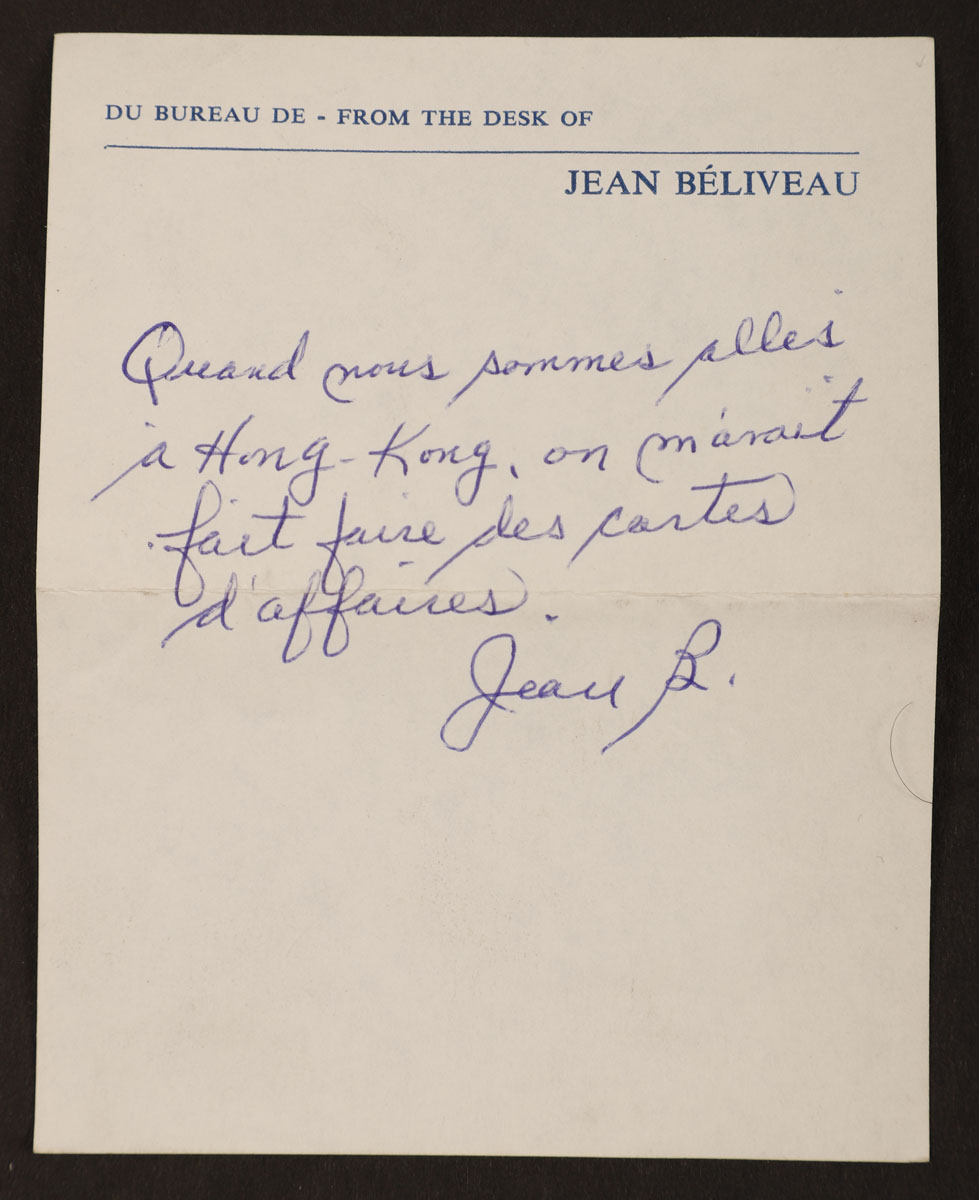 DU BUREAU DE - FROM THE DESK OF
JEAN BÉLIVEAU
Quand nous sommes allés
à Hong-Kong, on m'avait
fait faire des cartes
d'affaires.
Jean B.